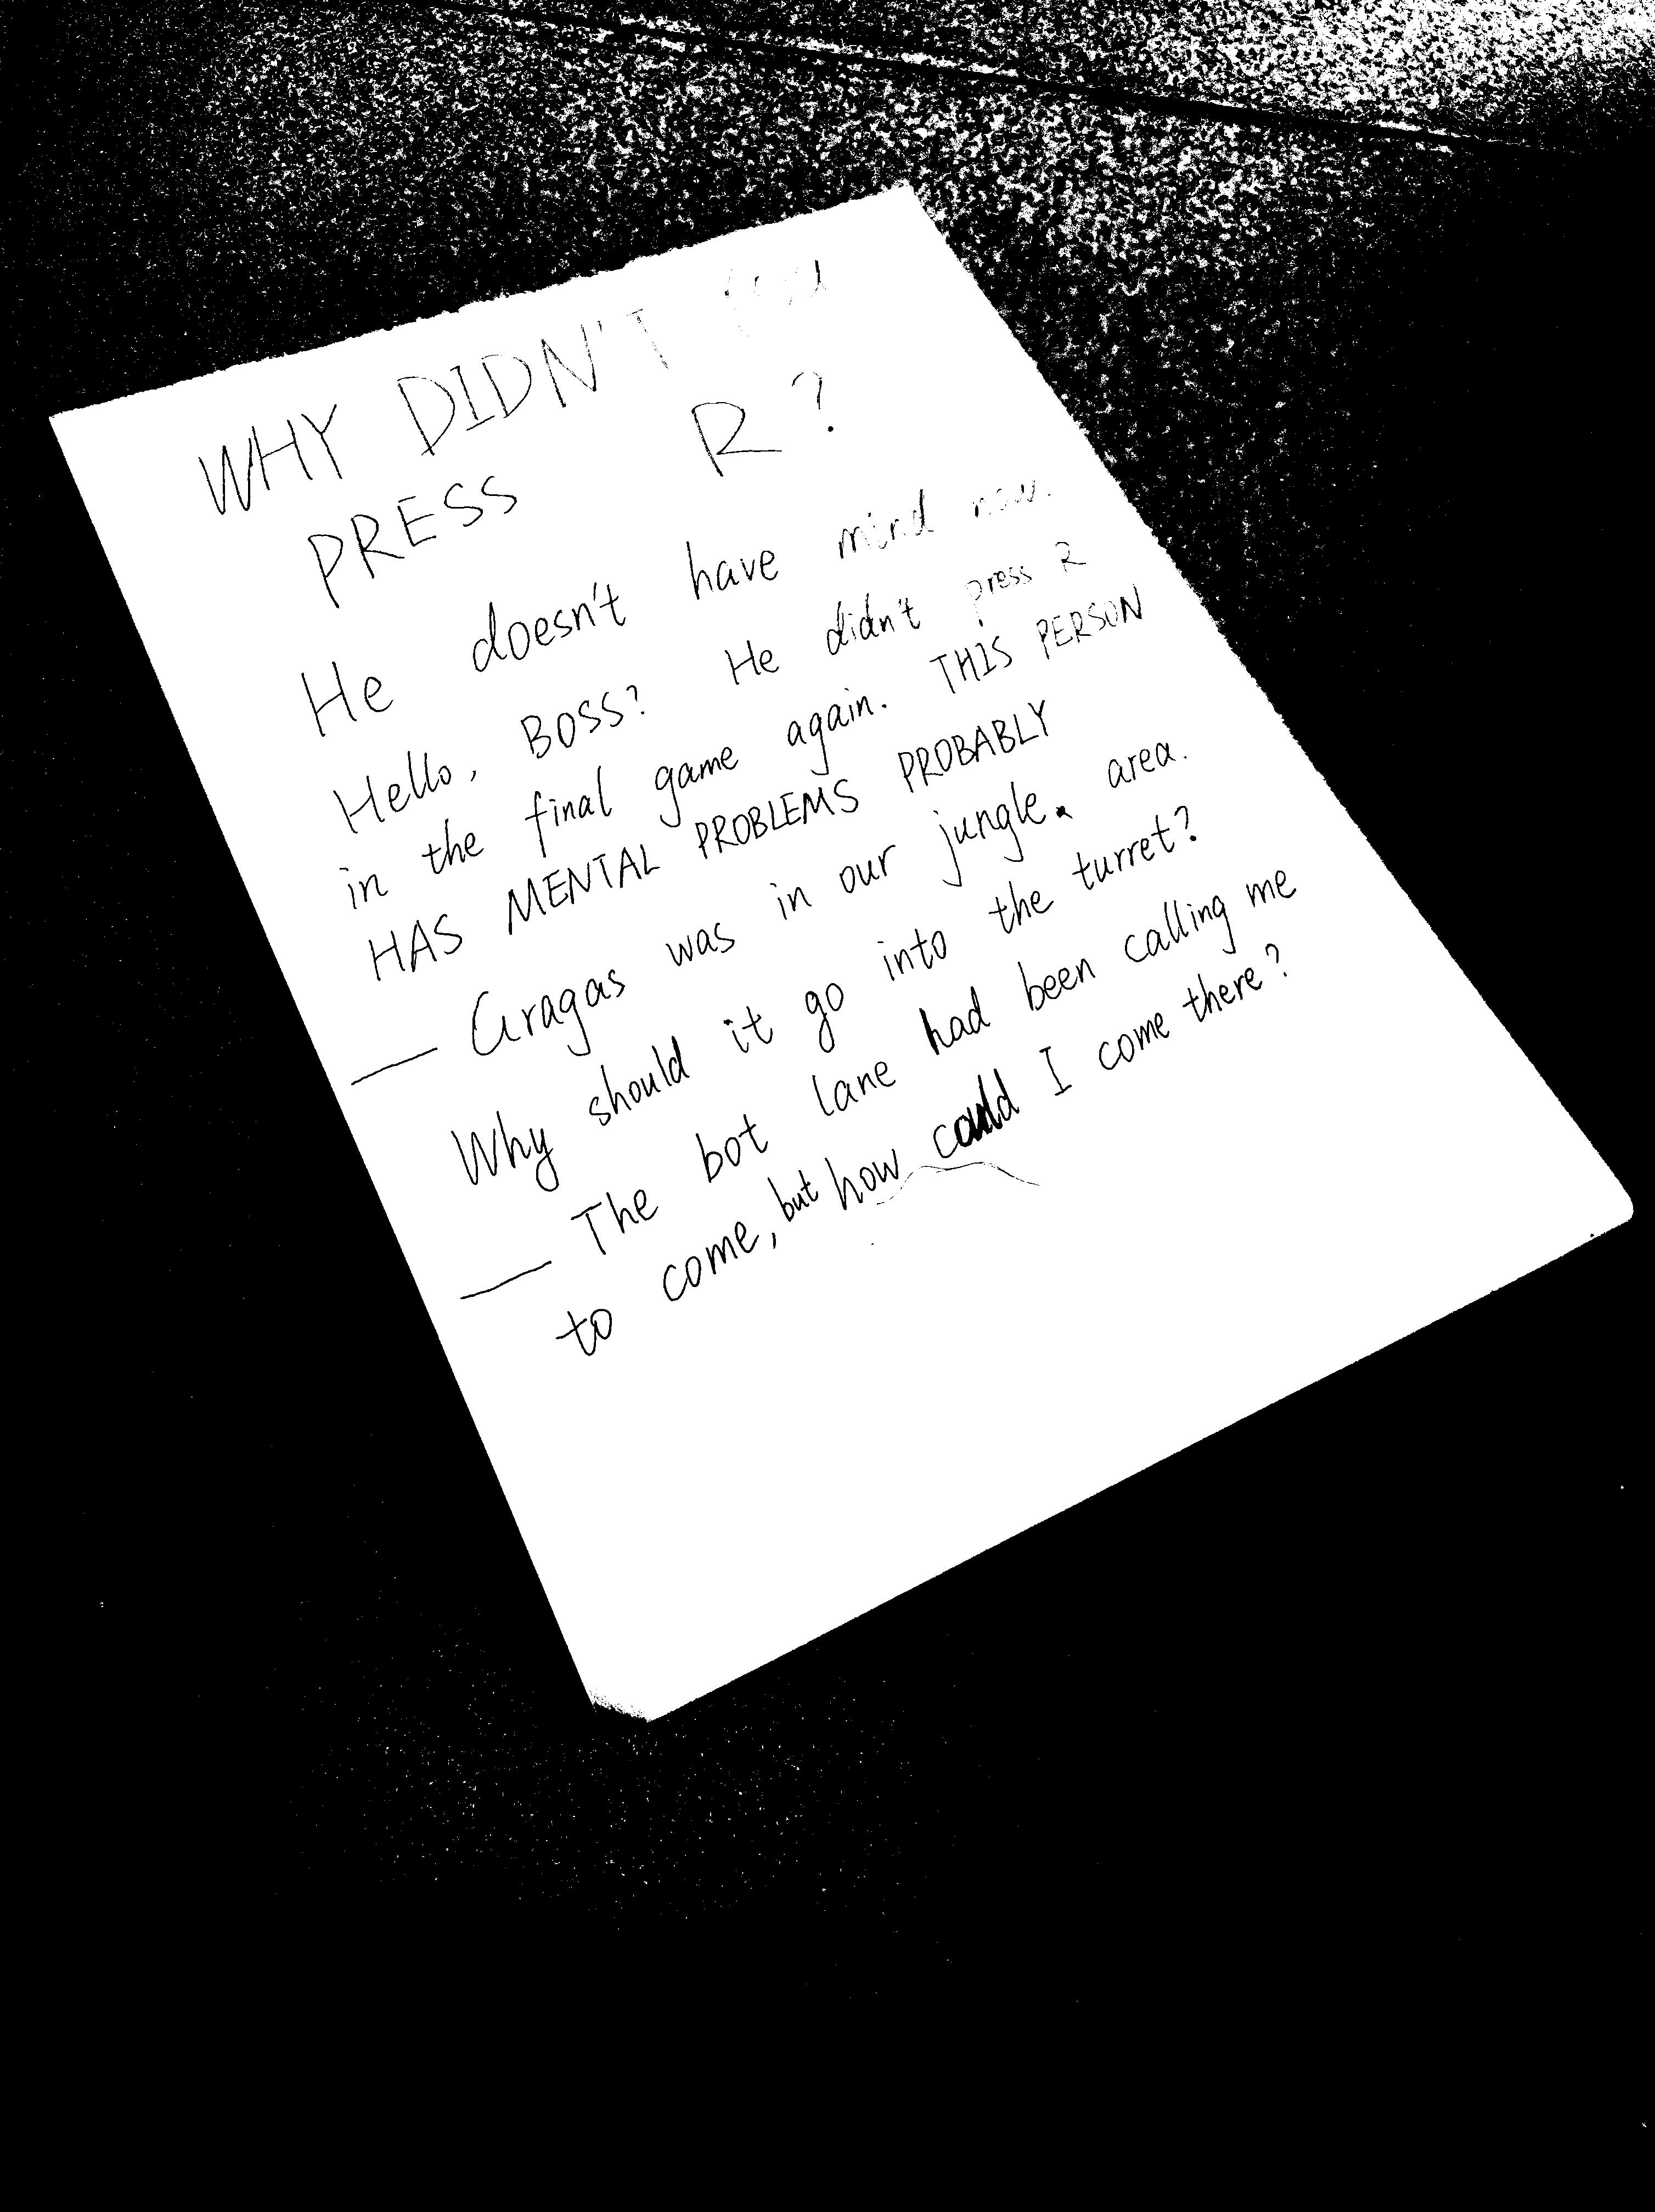 WHY DIDN'T you
PRESS R?
He doesn't have mind now.
Hello, BOSS? He didn't press R
in the final game again. THIS PERSON
HAS MENTAL PROBLEMS PROBABLY
— Gragas was in our jungle. area.
Why should it go into the turret?
— The bot lane had been calling me
to come, but how could I come there?